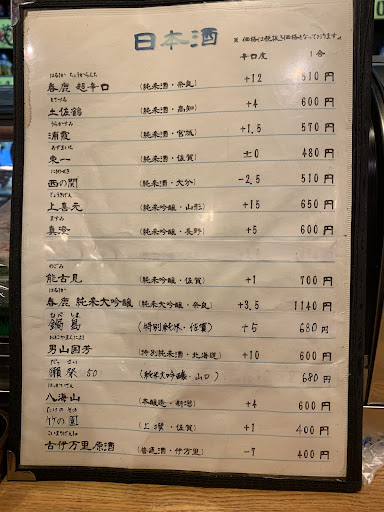 日本酒
※ 価格は税抜き価格となっております。
辛口度 1合
はるしか ちょうからくち
春鹿 超辛口 (純米酒・奈良) +12 510円
とさつる
土佐鶴 (純米酒・高知) +4 600円
うらかすみ
浦霞 (純米酒・宮城) +1.5 570円
あずまいち
東一 (純米酒・佐賀) ±0 480円
にしのせき
西の関 (純米酒・大分) -2.5 510円
じょうきげん
上喜元 (純米吟醸・山形) +15 650円
ますみ
真澄 (純米吟醸・長野) +5 600円
のごみ
能古見 (純米吟醸・佐賀) +1 700円
はるしか
春鹿 純米大吟醸 (純米大吟醸・奈良) +3.5 1140円
なべ しま
鍋島 (特別純米・佐賀) +5 680円
男山国芳 (特別純米酒・北海道) +10 600円
だっ さい
獺祭 50 (純米大吟醸・山口) 680円
はっかいさん
八海山 (本醸造・新潟) +4 600円
たけのその
竹の園 (上撰・佐賀) +1 400円
こいまりげんしゅ
古伊万里原酒 (普通酒・伊万里) -7 400円